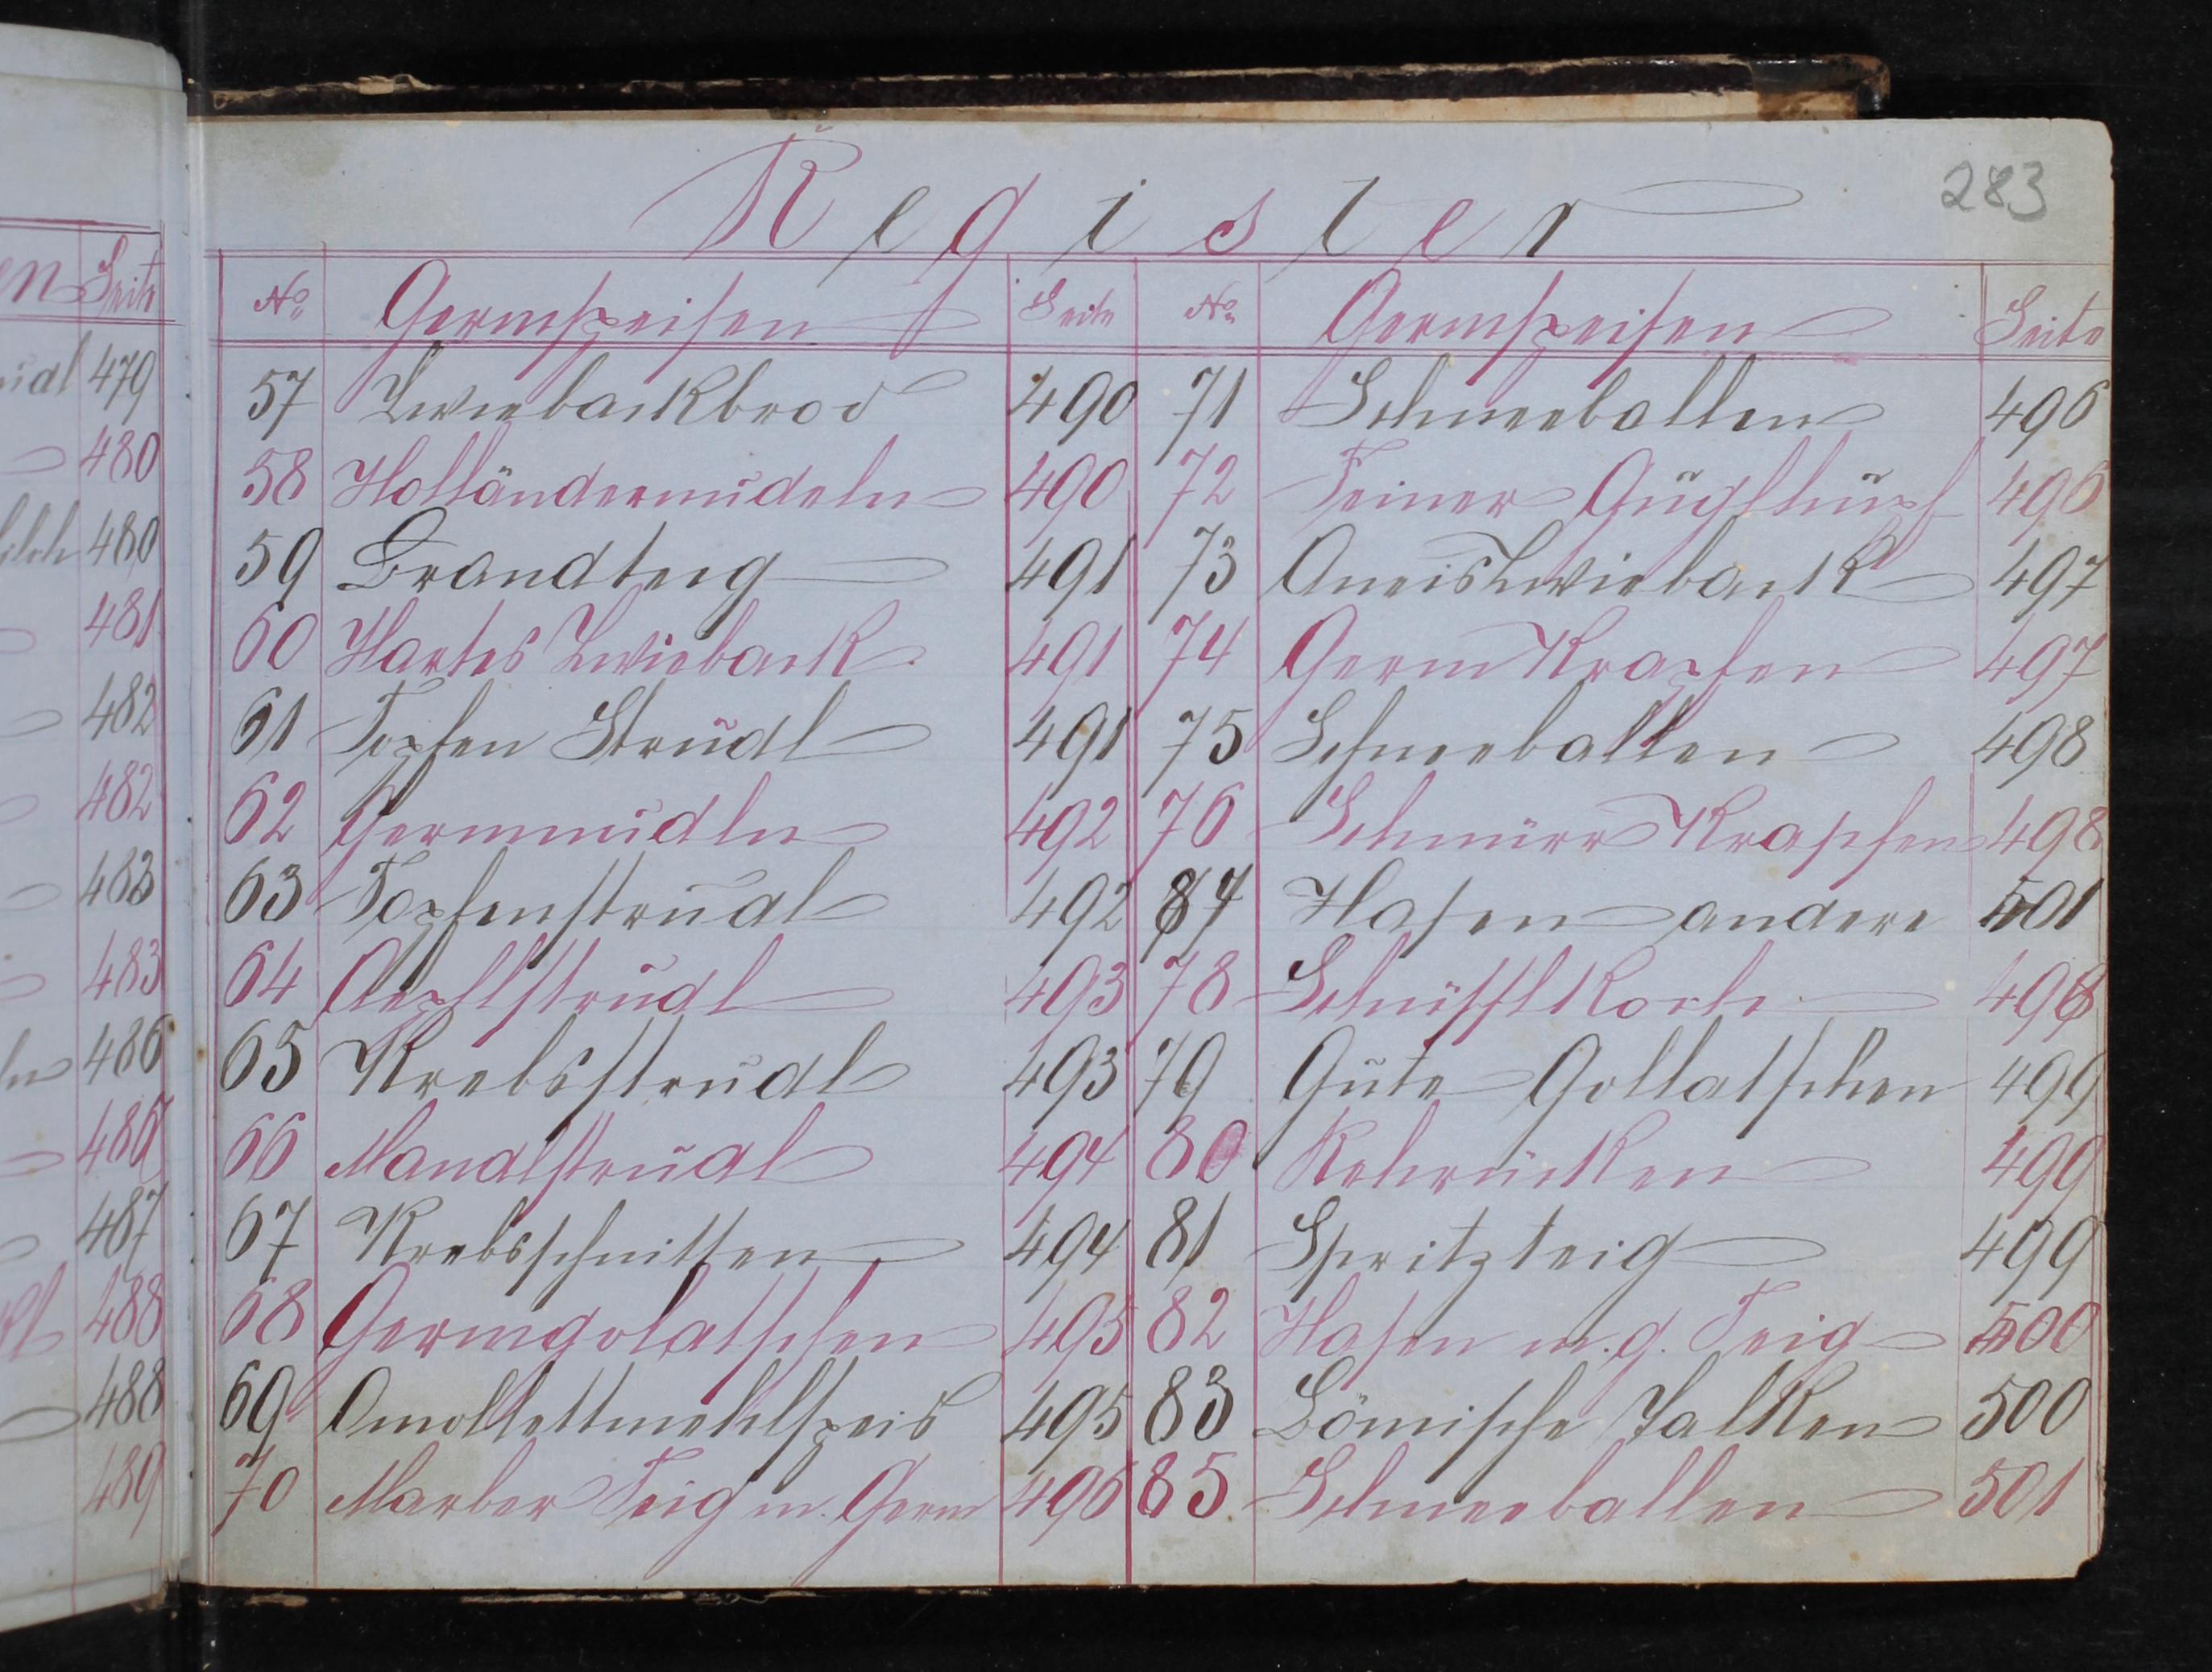 283
Register
No Germspeisen Seite No Germspeisen Seite
57 Zwiebackbrod 490 71 Schneeballen 496
58 Holländernudeln 490 72 Feiner Guglhupf 496
59 Brandteig 491 73 AneisZwieback 497
60 Hartes Zwieback 491 74 Germ Krapfen 497
61 Topfen Strudl 491 75 Schneeballen 498
62 Germnudln 492 76 Schnürr Krapfen 498
63 Topfenstrudl 492 84 Hasen andere 501
64 Aepflstrudl 493 78 SchüsslKoch 498
65 Krebsstrudl 493 79 Gute Gollatschen 499
66 Mandlstrudl 494 80 Rehrücken 499
67 Krebsschnitten 494 81 Spritzteig 499
68 Germgolatschen 495 82 Hasen m. g. Teig 500
69 Omollettmehlspeis 495 83 Bömische Talken 500
70 Marber Teig m. Germ 496 85 Schneeballen 501
Seite
479
480
480
481
482
482
483
483
486
486
487
488
488
489